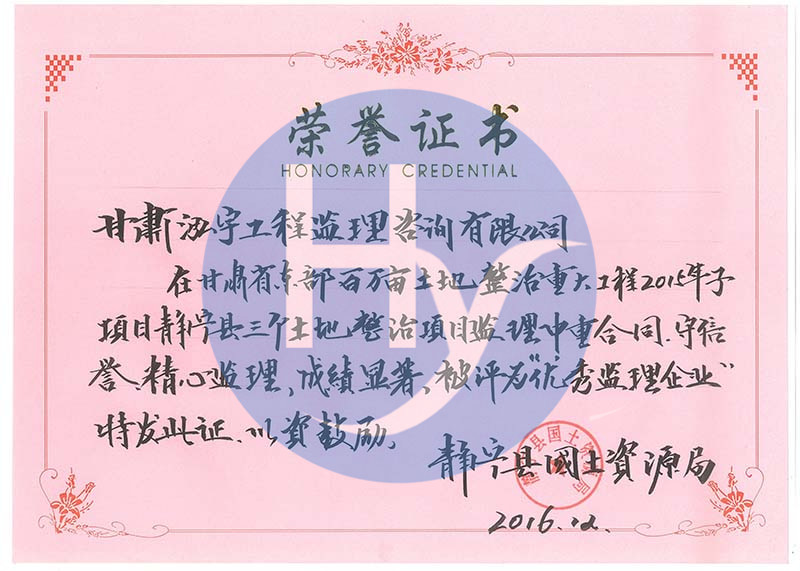 荣誉证书
HONORARY CREDENTIAL
甘肃泓宇工程监理咨询有限公司
在甘肃省东部百万亩土地整治重大工程2015年子
项目静宁县三个土地整治项目监理中重合同、守信
誉、精心监理、成绩显著、被评为“优秀监理企业”
特发此证、以资鼓励、
静宁县國土資源局
2016.12.
Hy